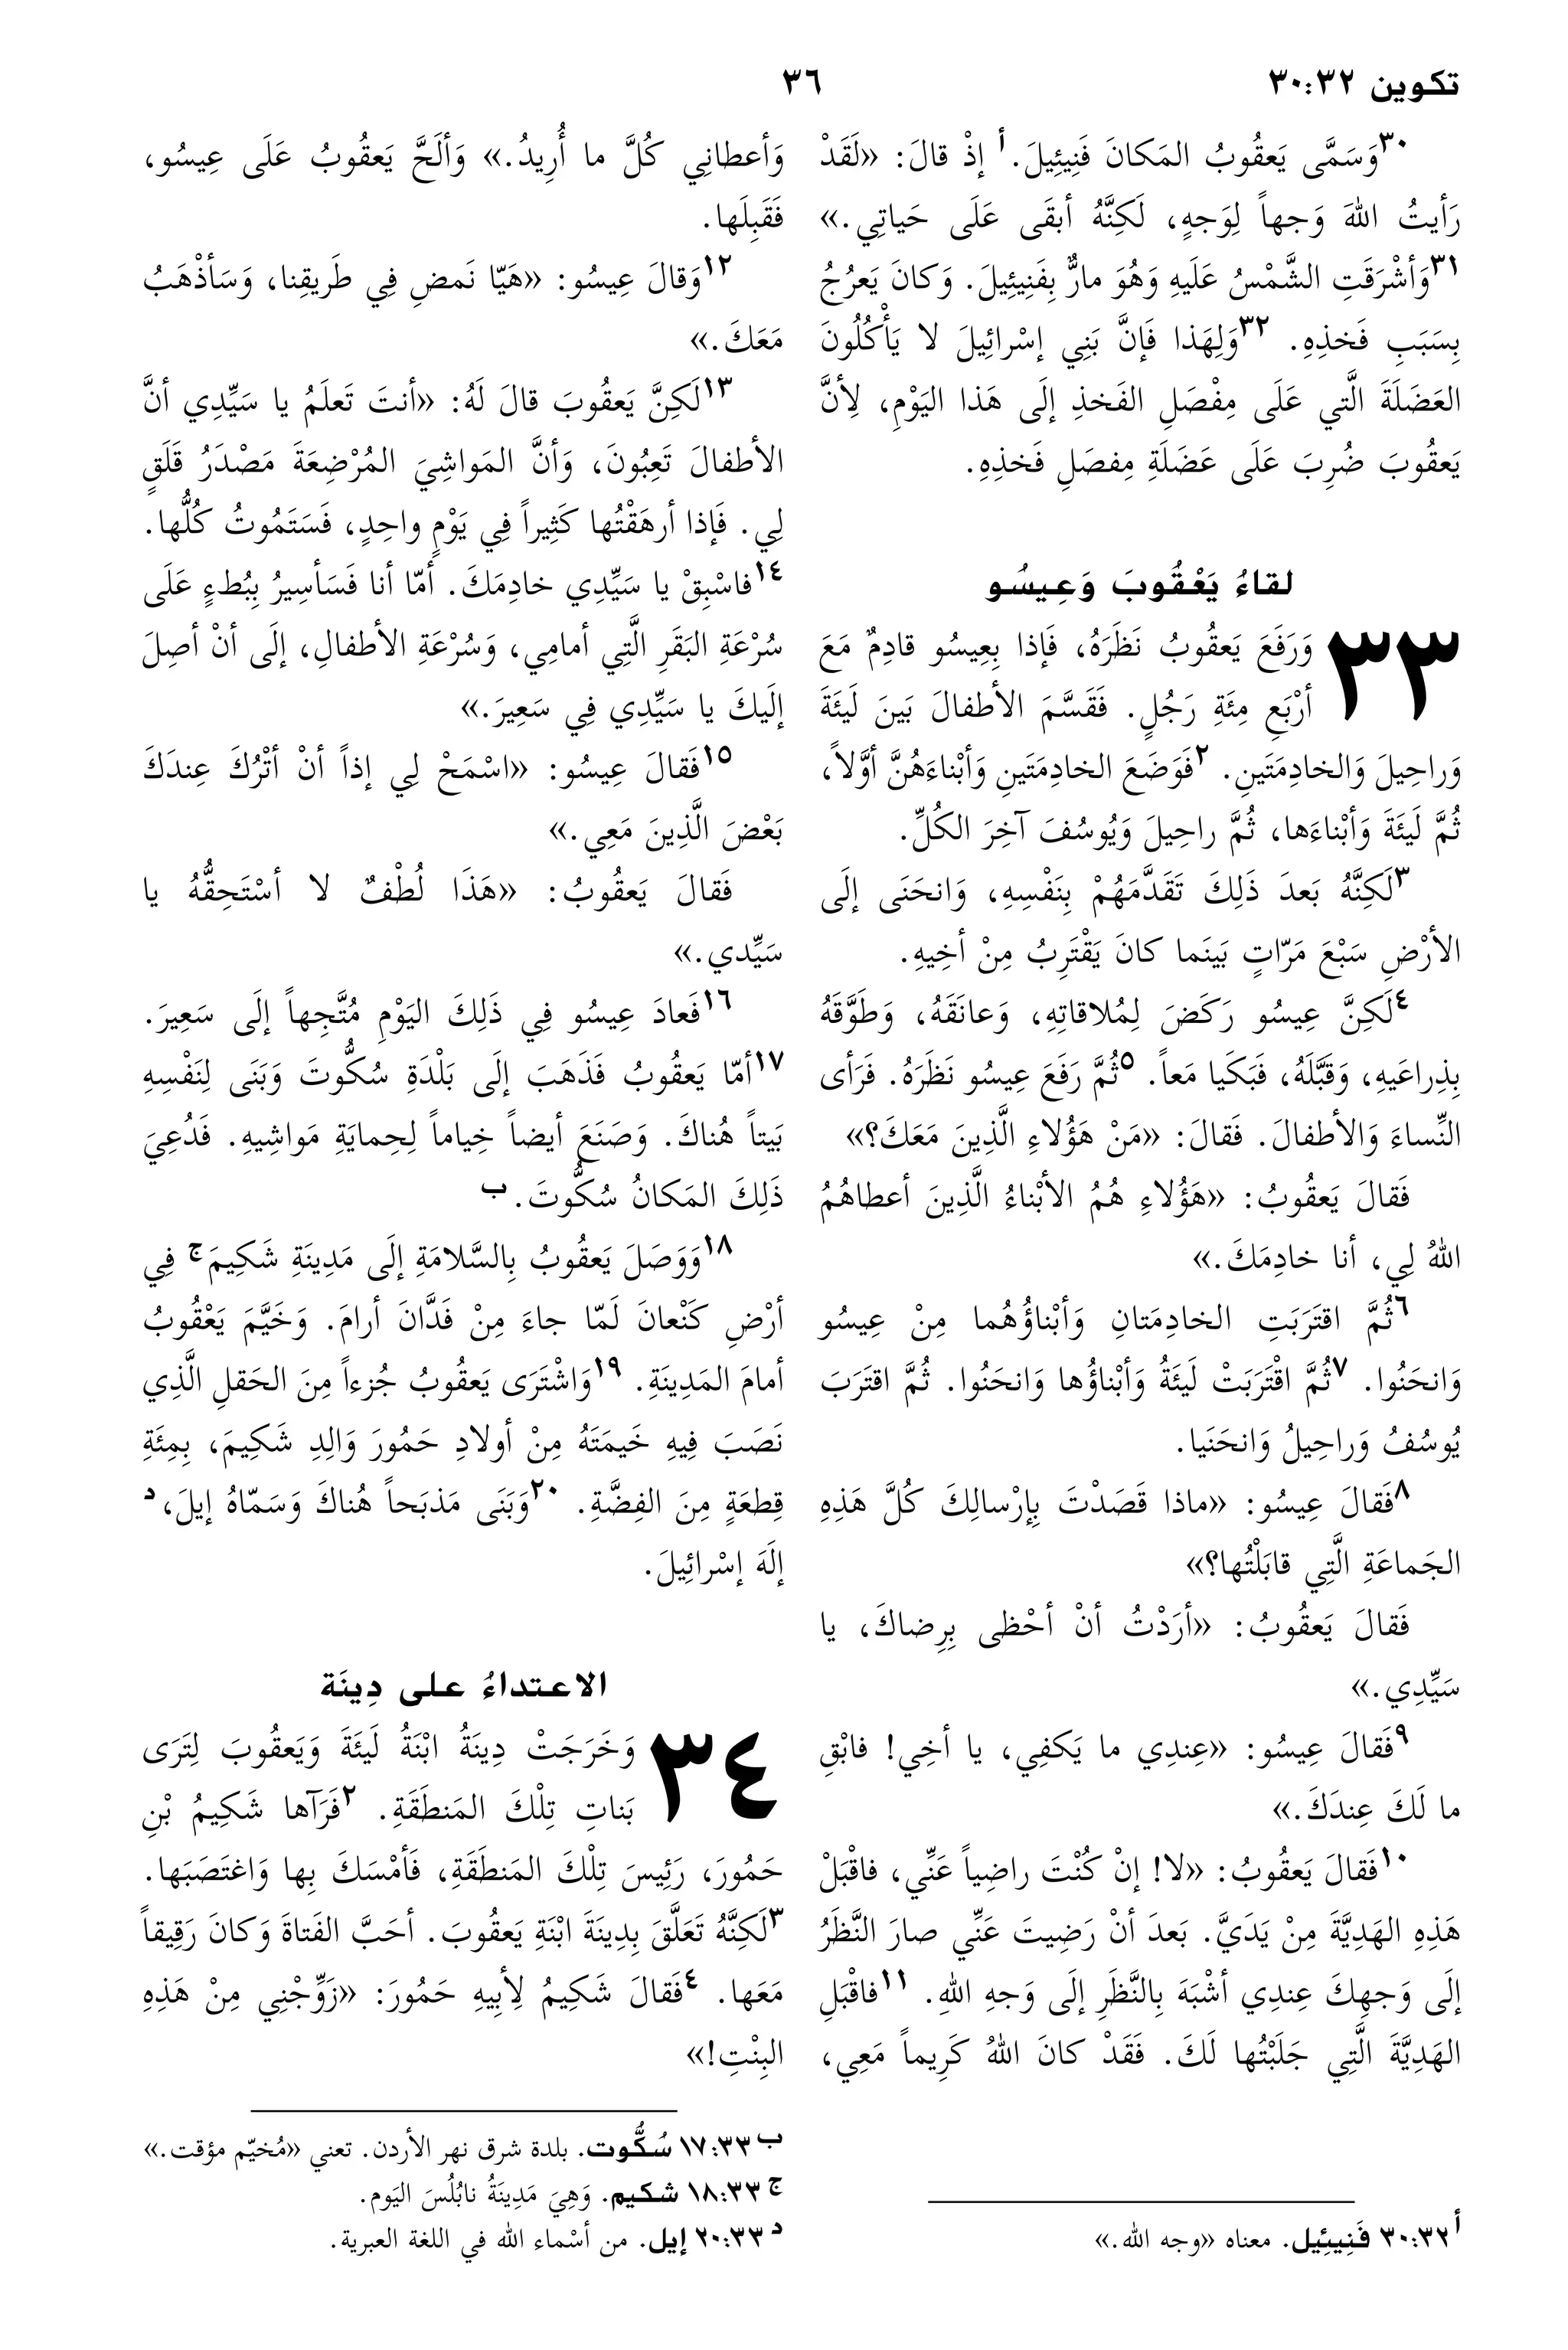 تكوين ٣٠:٣٢
٣٦
٣٠وَسَمَّى يَعقُوبُ المَكانَ فَنِيئِيلَ.أ إذْ قالَ: «لَقَدْ
رَأيتُ اللهَ وَجهاً لِوَجهٍ، لَكِنَّهُ أبقَى عَلَى حَياتِي.»
٣١وَأشْرَقَتِ الشَّمْسُ عَلَيهِ وَهُوَ مارٌّ بِفَنِيئِيلَ. وَكانَ يَعرُجُ
بِسَبَبِ فَخذِهِ. ٣٢وَلِهَذا فَإنَّ بَنِي إسْرائِيلَ لا يَأْكُلُونَ
العَضَلَةَ الَّتي عَلَى مِفْصَلِ الفَخذِ إلَى هَذا اليَوْمِ، لِأنَّ
يَعقُوبَ ضُرِبَ عَلَى عَضَلَةِ مِفصَلِ فَخذِهِ.
لقاءُ يَعْقُوبَ وَعِيسُو
٣٣ وَرَفَعَ يَعقُوبُ نَظَرَهُ، فَإذا بِعِيسُو قادِمٌ مَعَ
أرْبَعِ مِئَةِ رَجُلٍ. فَقَسَّمَ الأطفالَ بَينَ لَيئَةَ
وَراحِيلَ وَالخادِمَتَينِ. ٢فَوَضَعَ الخادِمَتَينِ وَأبْناءَهُنَّ أوَّلاً،
ثُمَّ لَيئَةَ وَأبْناءَها، ثُمَّ راحِيلَ وَيُوسُفَ آخِرَ الكُلِّ.
٣لَكِنَّهُ بَعدَ ذَلِكَ تَقَدَّمَهُمْ بِنَفْسِهِ، وَانحَنَى إلَى
الأرْضِ سَبْعَ مَرّاتٍ بَينَما كانَ يَقْتَرِبُ مِنْ أخِيهِ.
٤لَكِنَّ عِيسُو رَكَضَ لِمُلاقاتِهِ، وَعانَقَهُ، وَطَوَّقَهُ
بِذِراعَيهِ، وَقَبَّلَهُ، فَبَكَيا مَعاً. ٥ثُمَّ رَفَعَ عِيسُو نَظَرَهُ. فَرَأى
النِّساءَ وَالأطفالَ. فَقالَ: «مَنْ هَؤُلاءِ الَّذِينَ مَعَكَ؟»
فَقالَ يَعقُوبُ: «هَؤُلاءِ هُمُ الأبْناءُ الَّذِينَ أعطاهُمُ
اللهُ لِي، أنا خادِمَكَ.»
٦ثُمَّ اقتَرَبَتِ الخادِمَتانِ وَأبْناؤُهُما مِنْ عِيسُو
وَانحَنُوا. ٧ثُمَّ اقْتَرَبَتْ لَيئَةُ وَأبْناؤُها وَانحَنُوا. ثُمَّ اقتَرَبَ
يُوسُفُ وَراحِيلُ وَانحَنَيا.
٨فَقالَ عِيسُو: «ماذا قَصَدْتَ بِإرْسالِكَ كُلَّ هَذِهِ
الجَماعَةِ الَّتِي قابَلْتُها؟»
فَقالَ يَعقُوبُ: «أرَدْتُ أنْ أحْظى بِرِضاكَ، يا
سَيِّدِي.»
٩فَقالَ عِيسُو: «عِندِي ما يَكفِي، يا أخِي! فابْقِ
ما لَكَ عِندَكَ.»
١٠فَقالَ يَعقُوبُ: «لا! إنْ كُنْتَ راضِياً عَنِّي، فاقْبَلْ
هَذِهِ الهَدِيَّةَ مِنْ يَدَيَّ. بَعدَ أنْ رَضِيتَ عَنِّي صارَ النَّظَرُ
إلَى وَجهِكَ عِندِي أشْبَهَ بِالنَّظَرِ إلَى وَجهِ اللهِ. ١١فاقْبَلِ
الهَدِيَّةَ الَّتِي جَلَبْتُها لَكَ. فَقَدْ كانَ اللهُ كَرِيماً مَعِي،
أ٣٠:٣٢ فَنِيئِيل. معناه «وجه الله.»
وَأعطانِي كُلَّ ما أُرِيدُ.» وَألَحَّ يَعقُوبُ عَلَى عِيسُو،
فَقَبِلَها.
١٢وَقالَ عِيسُو: «هَيّا نَمضِ فِي طَريقِنا، وَسَأذْهَبُ
مَعَكَ.»
١٣لَكِنَّ يَعقُوبَ قالَ لَهُ: «أنتَ تَعلَمُ يا سَيِّدِي أنَّ
الأطفالَ تَعِبُونَ، وَأنَّ المَواشِيَ المُرْضِعَةَ مَصْدَرُ قَلَقٍ
لِي. فَإذا أرهَقْتُها كَثِيراً فِي يَوْمٍ واحِدٍ، فَسَتَمُوتُ كُلُّها.
١٤فاسْبِقْ يا سَيِّدِي خادِمَكَ. أمّا أنا فَسَأسِيرُ بِبُطءٍ عَلَى
سُرْعَةِ البَقَرِ الَّتِي أمامِي، وَسُرْعَةِ الأطفالِ، إلَى أنْ أصِلَ
إلَيكَ يا سَيِّدِي فِي سَعِيرَ.»
١٥فَقالَ عِيسُو: «اسْمَحْ لِي إذاً أنْ أتْرُكَ عِندَكَ
بَعْضَ الَّذِينَ مَعِي.»
فَقالَ يَعقُوبُ: «هَذَا لُطْفٌ لا أسْتَحِقُّهُ يا
سَيِّدي.»
١٦فَعادَ عِيسُو فِي ذَلِكَ اليَوْمِ مُتَّجِهاً إلَى سَعِيرَ.
١٧أمّا يَعقُوبُ فَذَهَبَ إلَى بَلْدَةِ سُكُّوتَ وَبَنَى لِنَفْسِهِ
بَيتاً هُناكَ. وَصَنَعَ أيضاً خِياماً لِحِمايَةِ مَواشِيهِ. فَدُعِيَ
ذَلِكَ المَكانُ سُكُّوتَ.ب
١٨وَوَصَلَ يَعقُوبُ بِالسَّلامَةِ إلَى مَدِينَةِ شَكِيمَج فِي
أرْضِ كَنْعانَ لَمّا جاءَ مِنْ فَدَّانَ أرامَ. وَخَيَّمَ يَعْقُوبُ
أمامَ المَدِينَةِ. ١٩وَاشْتَرَى يَعقُوبُ جُزءاً مِنَ الحَقلِ الَّذِي
نَصَبَ فِيهِ خَيمَتَهُ مِنْ أولادِ حَمُورَ وَالِدِ شَكِيمَ، بِمِئَةِ
قِطعَةٍ مِنَ الفِضَّةِ. ٢٠وَبَنَى هُناكَ مَذبَحاً وَسَمّاهُ إيلَ،د
إلَهَ إسْرائِيلَ.
الاعتداءُ على دِينَة
٣٤ وَخَرَجَتْ دِينَةُ ابْنَةُ لَيئَةَ وَيَعقُوبَ لِتَرَى
بَناتِ تِلْكَ المَنطَقَةِ. ٢فَرَآها شَكِيمُ بْنِ
حَمُورَ، رَئِيسَ تِلْكَ المَنطَقَةِ، فَأمْسَكَ بِها وَاغتَصَبَها.
٣لَكِنَّهُ تَعَلَّقَ بِدِينَةَ ابْنَةِ يَعقُوبَ. أحَبَّ الفَتاةَ وَكانَ رَقِيقاً
مَعَها. ٤فَقالَ شَكِيمُ لِأبِيهِ حَمُورَ: «زَوِّجْنِي مِنْ هَذِهِ
البِنْتِ!»
ب١٧:٣٣ سُكُّوت. بلدة شرق نهر الأردن. تعني «مُخيّم مؤقت.»
ج١٨:٣٣ شكيم. وَهِيَ مَدِينَةُ نابُلُسَ اليَوم.
د٢٠:٣٣ إيل. من أسْماء الله في اللغة العبرية.